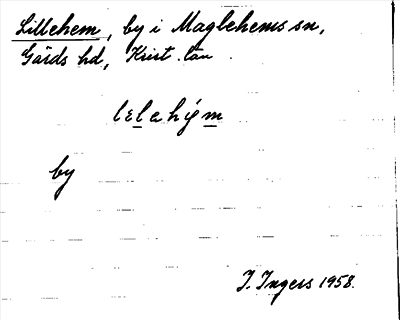 Lillehem, by i Maglehems sn,
Gärds hd, Krist. län.
lɛlahým
by
J. Ingers 1958.